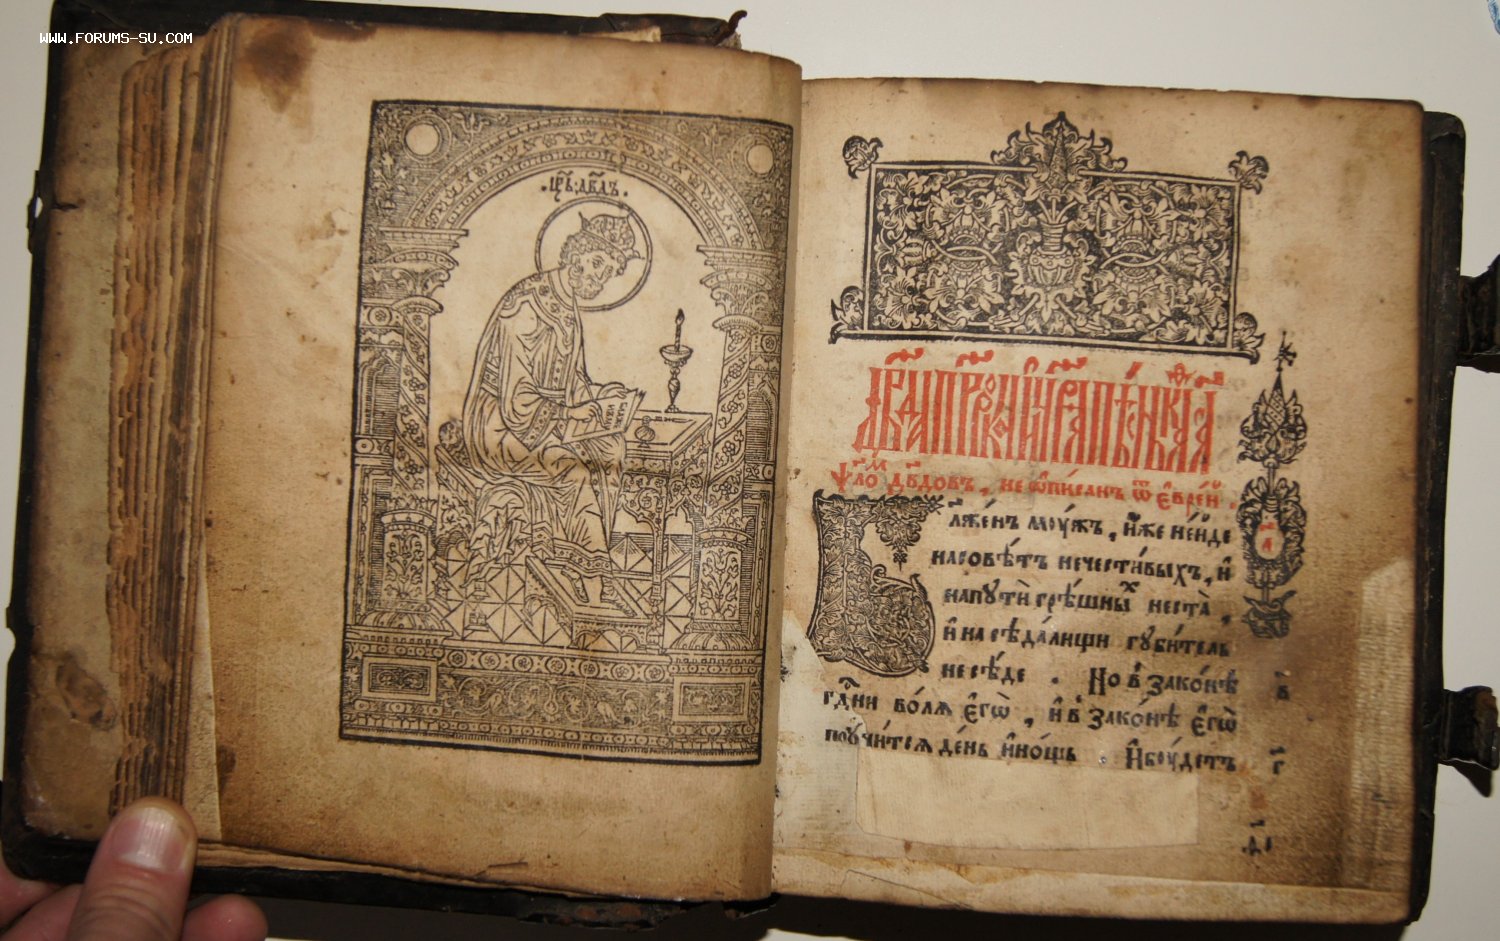 WWW.FORUMS-SU.COM
.цр҃ь: дв҃дъ.
ѱало́мъ дв҃довъ, не ѡ҆писанъ ѿ є҆врє́й.
Блаже́нъ моу́жъ, и҆́же не и҆́де
на совѣ́тъ нечести́выхъ, и҆
на путѝ грѣ́шныхъ не ста̀,
и҆ на сѣда́лищи губи́тель
не сѣ́де. Но в҆ зако́нѣ
гд҃ни во́лѧ є҆гѡ̀, и҆ в҆ зако́нѣ є҆гѡ̀
поучи́тсѧ де́нь и҆ но́щь. И҆ боу́детъ
а҃
в҃
г҃